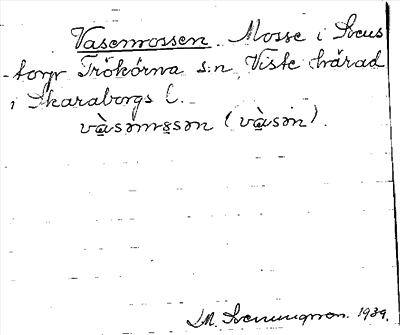 Vasenmossen. Mosse i Svens
torp Trökörna s:n, Viste härad
i Skaraborgs l.
vàsəmɷsən (vàsən).
M. Svenungsson. 1939.